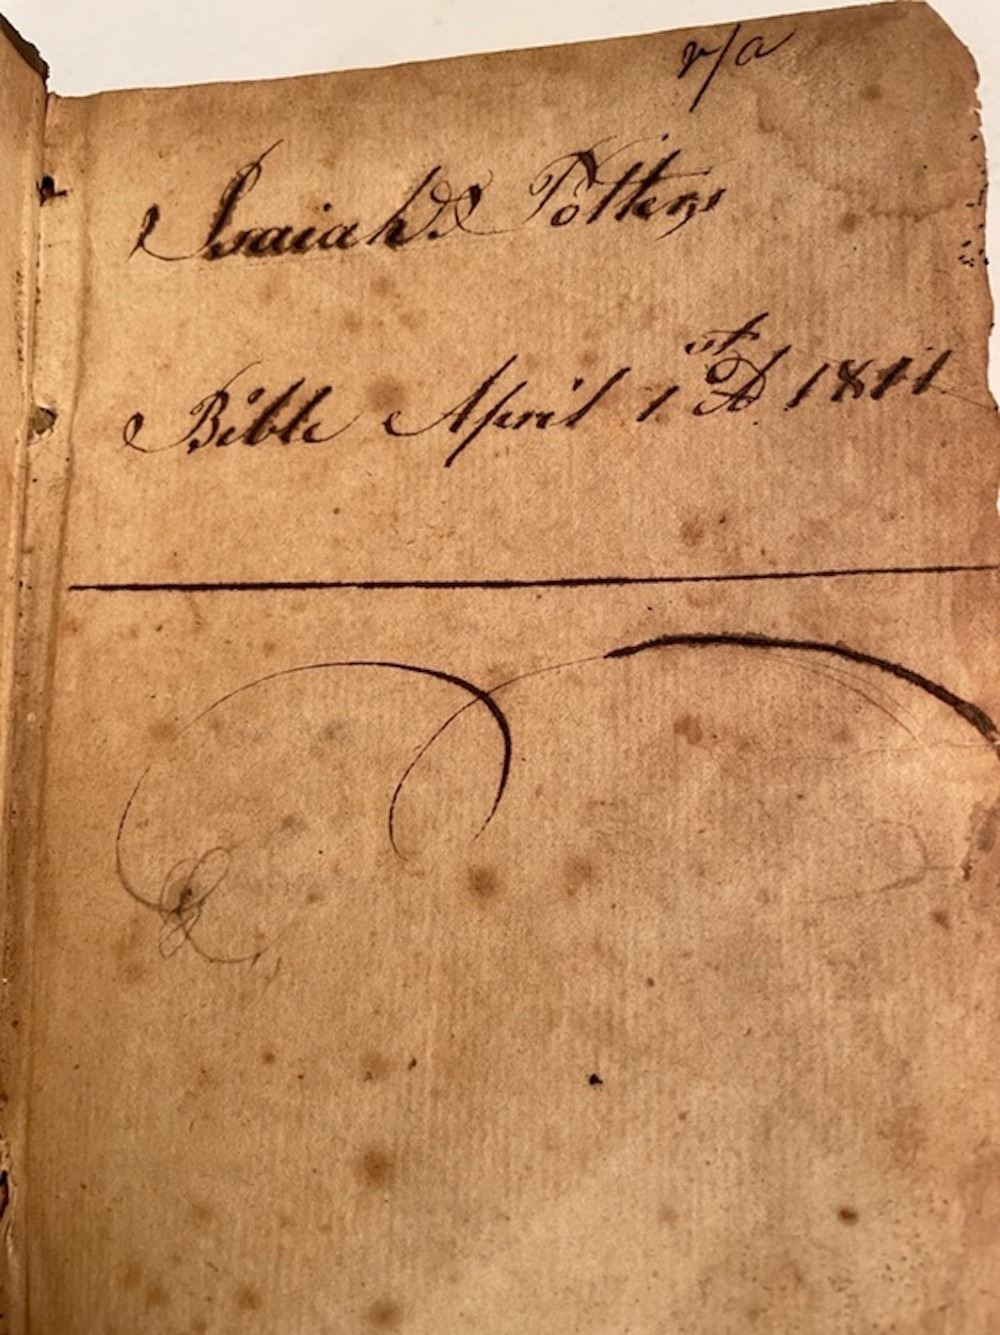 r/a
Isaiah D Potters
Bible April 1st AD 1811